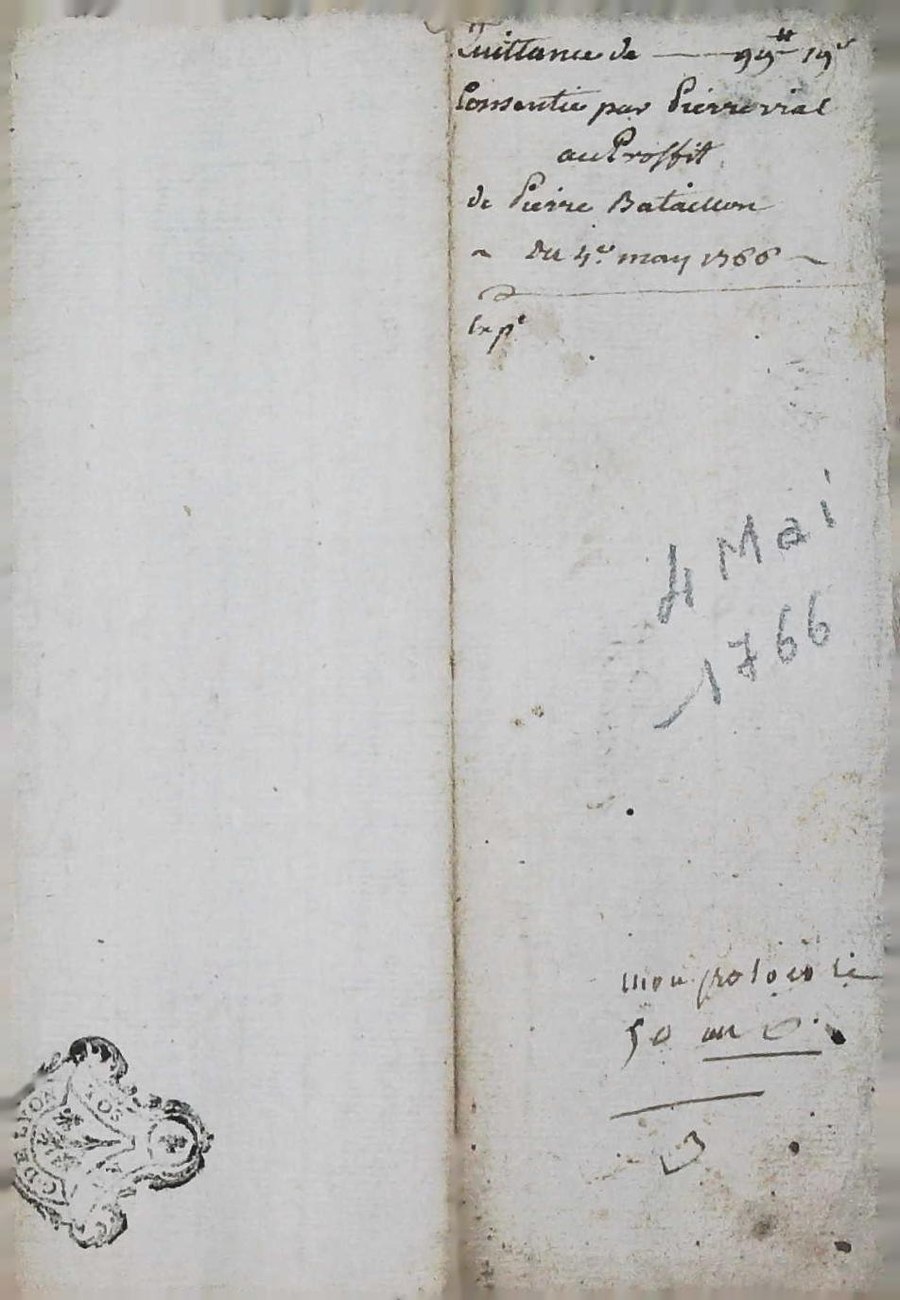 Quittance de — 99tt 19s
Consentie par Pierre vial
au Proffit
de Pierre Bataillon
~ Du 4e. may 1766 ~
Exp[e]
4 Mai
1766
mon protocole
50
3
DE LYON
SOLS